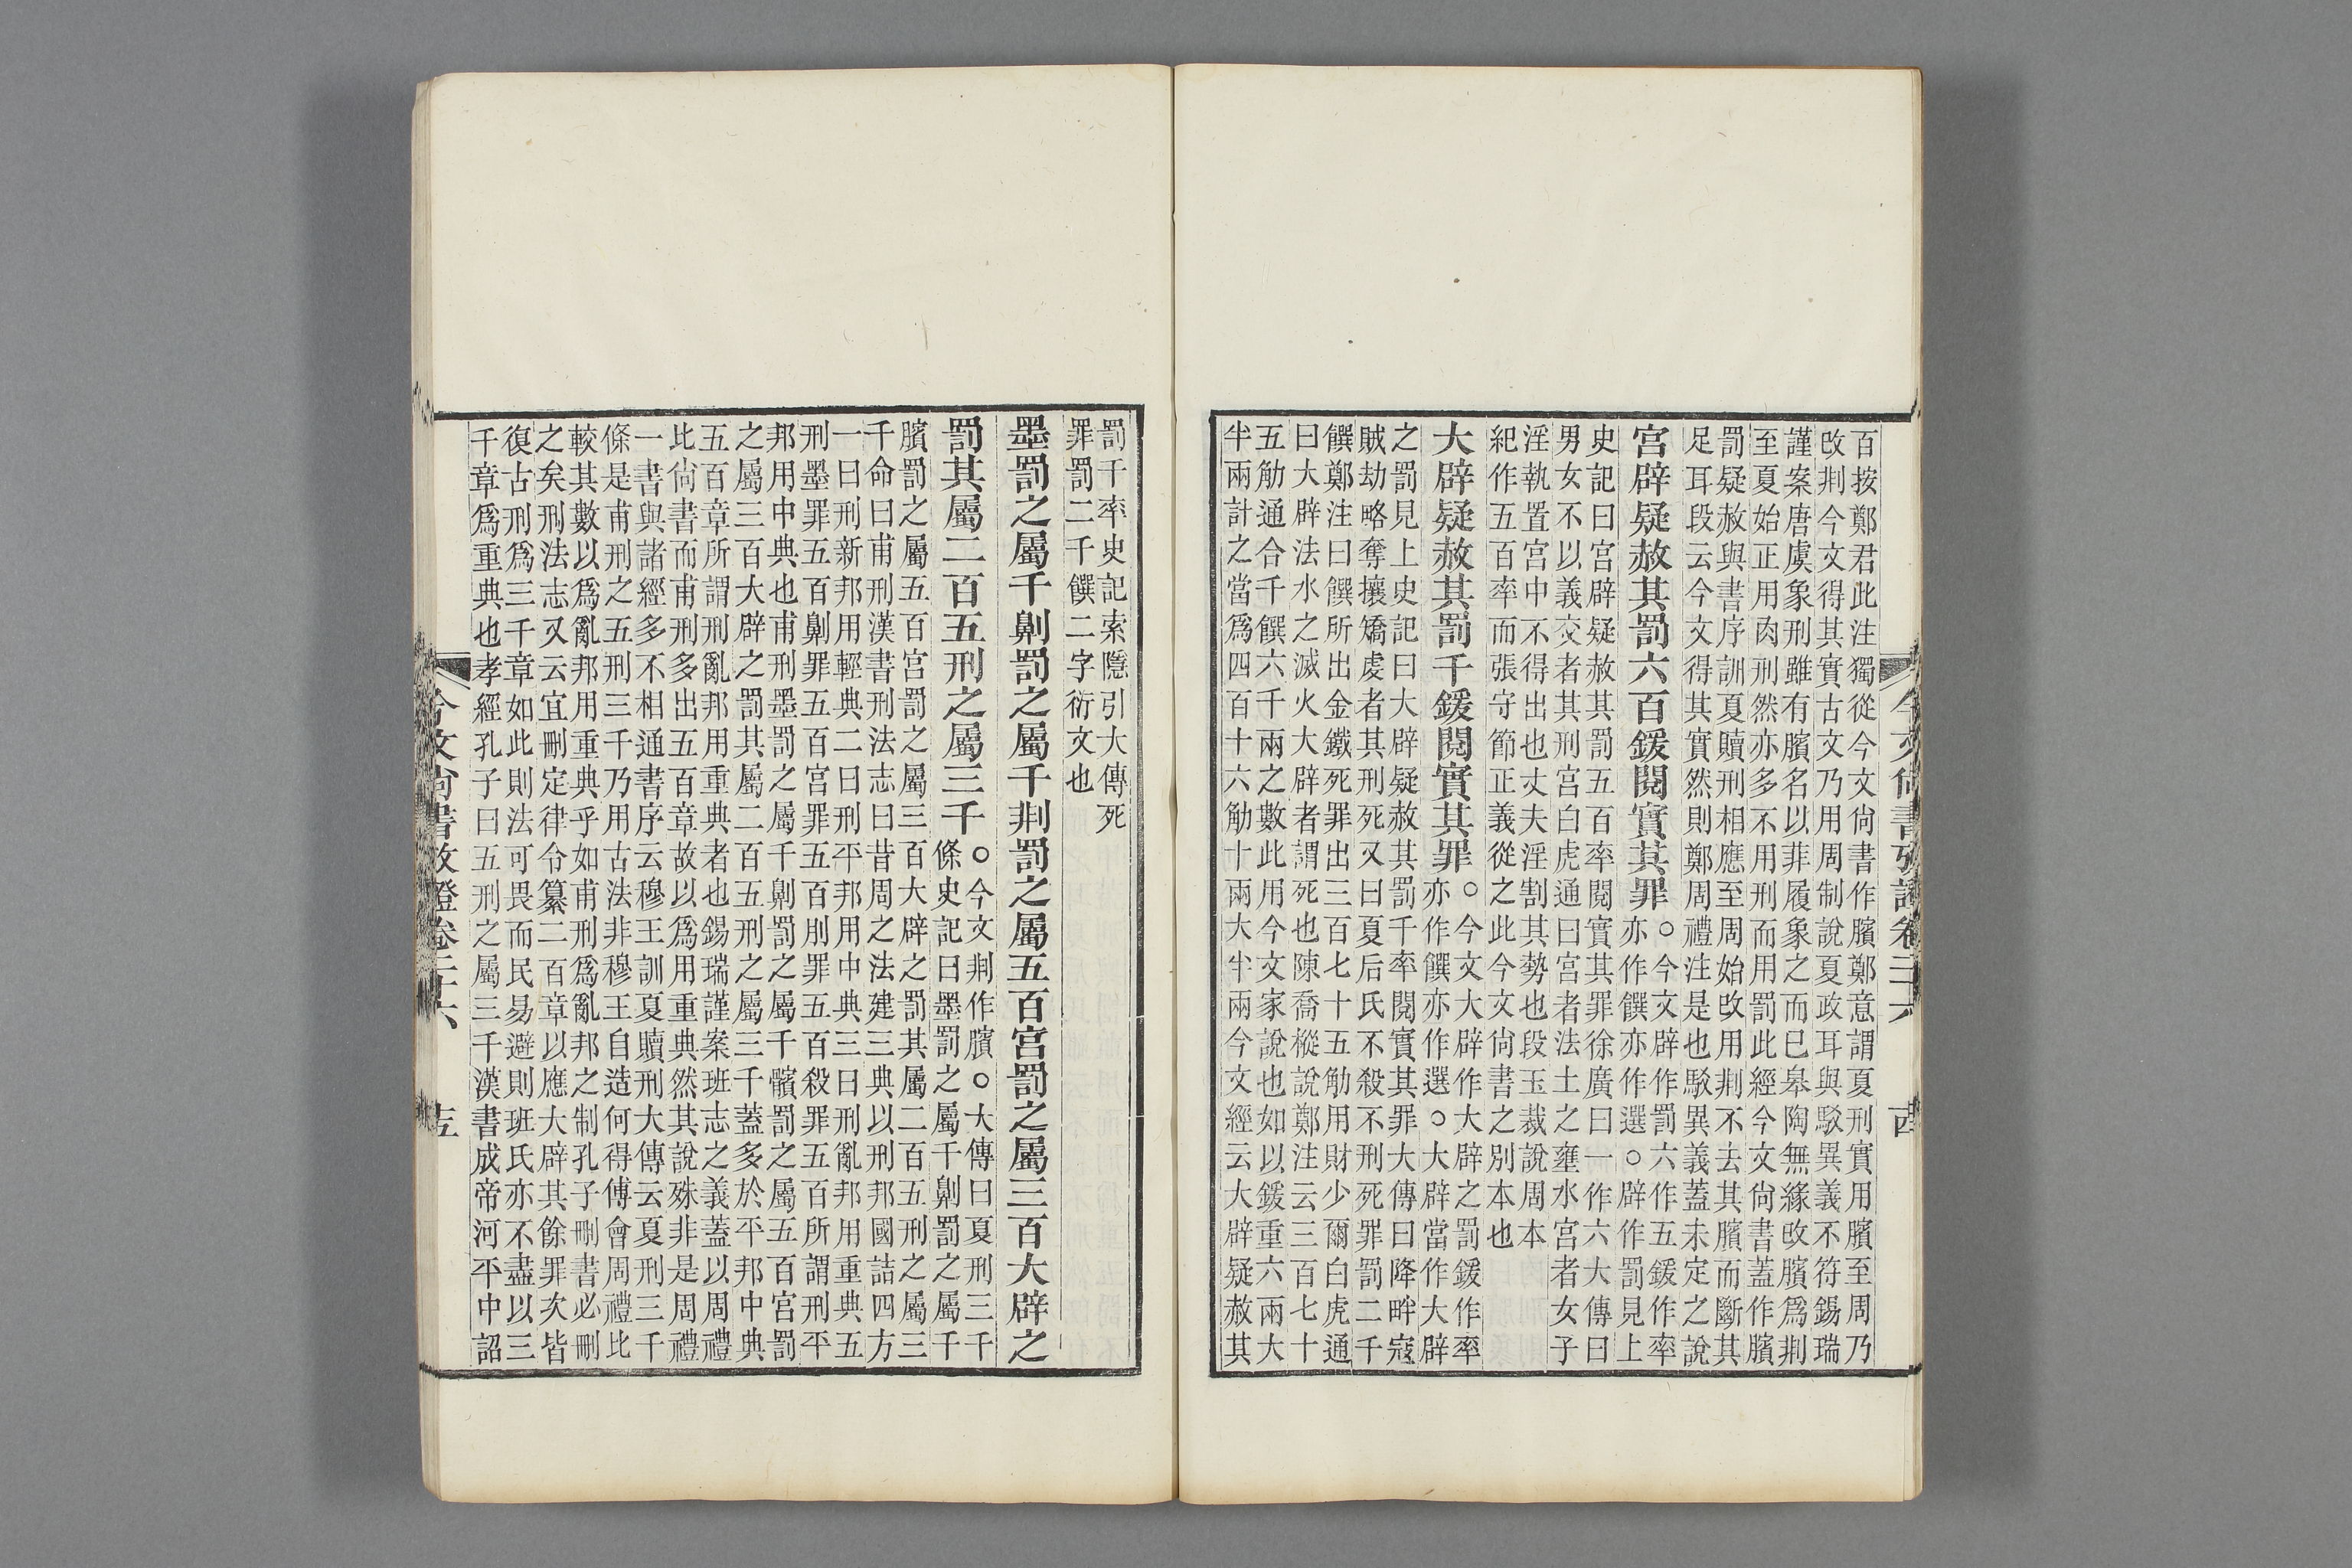 百按鄭君此注獨從今文尙書作臏鄭意謂夏刑實用臏至周乃
攺剕今文得其實古文乃用周制說夏政耳與駁異義不符錫瑞
謹案唐虞象刑雖有臏名以菲履象之而已皋陶無緣攺臏爲剕
至夏始正用肉刑然亦多不用刑而用罰此經今文尙書蓋作臏
罰疑赦與書序訓夏贖刑相應至周始攺用剕不去其臏而斷其
足耳段云今文得其實然則鄭周禮注是也駁異義蓋未定之說
宮辟疑赦其罰六百鍰閱實其罪○今文辟作罰六作五鍰作率
亦作饌亦作選○辟作罰見上
史記曰宮辟疑赦其罰五百率閱實其罪徐廣曰一作六大傳曰
男女不以義交者其刑宮白虎通曰宮者法土之壅水宮者女子
淫執置宮中不得出也丈夫淫割其勢也段玉裁說周本
紀作五百率而張守節正義從之此今文尙書之別本也
大辟疑赦其罰千鍰閱實其罪○今文大辟作大辟之罰鍰作率
亦作饌亦作選○大辟當作大辟
之罰見上史記曰大辟疑赦其罰千率閱實其罪大傳曰降畔寇
賊劫略奪攘矯虔者其刑死又曰夏后氏不殺不刑死罪罰二千
饌鄭注曰饌所出金鐵死罪出三百七十五觔用財少爾白虎通
曰大辟法水之滅火大辟者謂死也陳喬樅說鄭注云三百七十
五觔通合千饌六千兩之數此用今文家說也如以鍰重六兩大
半兩計之當爲四百十六觔十兩大半兩今文經云大辟疑赦其
今文尙書攷證卷二十六
十四
罰千率史記索隱引大傳死
罪罰二千饌二字衍文也
墨罰之屬千劓罰之屬千剕罰之屬五百宮罰之屬三百大辟之
罰其屬二百五刑之屬三千○今文剕作臏○大傳曰夏刑三千
條史記曰墨罰之屬千劓罰之屬千
臏罰之屬五百宮罰之屬三百大辟之罰其屬二百五刑之屬三
千命曰甫刑漢書刑法志曰昔周之法建三典以刑邦國詰四方
一曰刑新邦用輕典二曰刑平邦用中典三曰刑亂邦用重典五
刑墨罪五百劓罪五百宮罪五百刖罪五百殺罪五百所謂刑平
邦用中典也甫刑墨罰之屬千劓罰之屬千髕罰之屬五百宮罰
之屬三百大辟之罰其屬二百五刑之屬三千蓋多於平邦中典
五百章所謂刑亂邦用重典者也錫瑞謹案班志之義蓋以周禮
比尙書而甫刑多出五百章故以爲用重典然其說殊非是周禮
一書與諸經多不相通書序云穆王訓夏贖刑大傳云夏刑三千
條是甫刑之五刑三千乃用古法非穆王自造何得傅會周禮比
較其數以爲亂邦用重典乎如甫刑爲亂邦之制孔子刪書必刪
之矣刑法志又云宜刪定律令纂二百章以應大辟其餘罪次皆
復古刑爲三千章如此則法可畏而民易避則班氏亦不盡以三
千章爲重典也孝經孔子曰五刑之屬三千漢書成帝河平中詔
今文尙書攷證卷二十六
十五